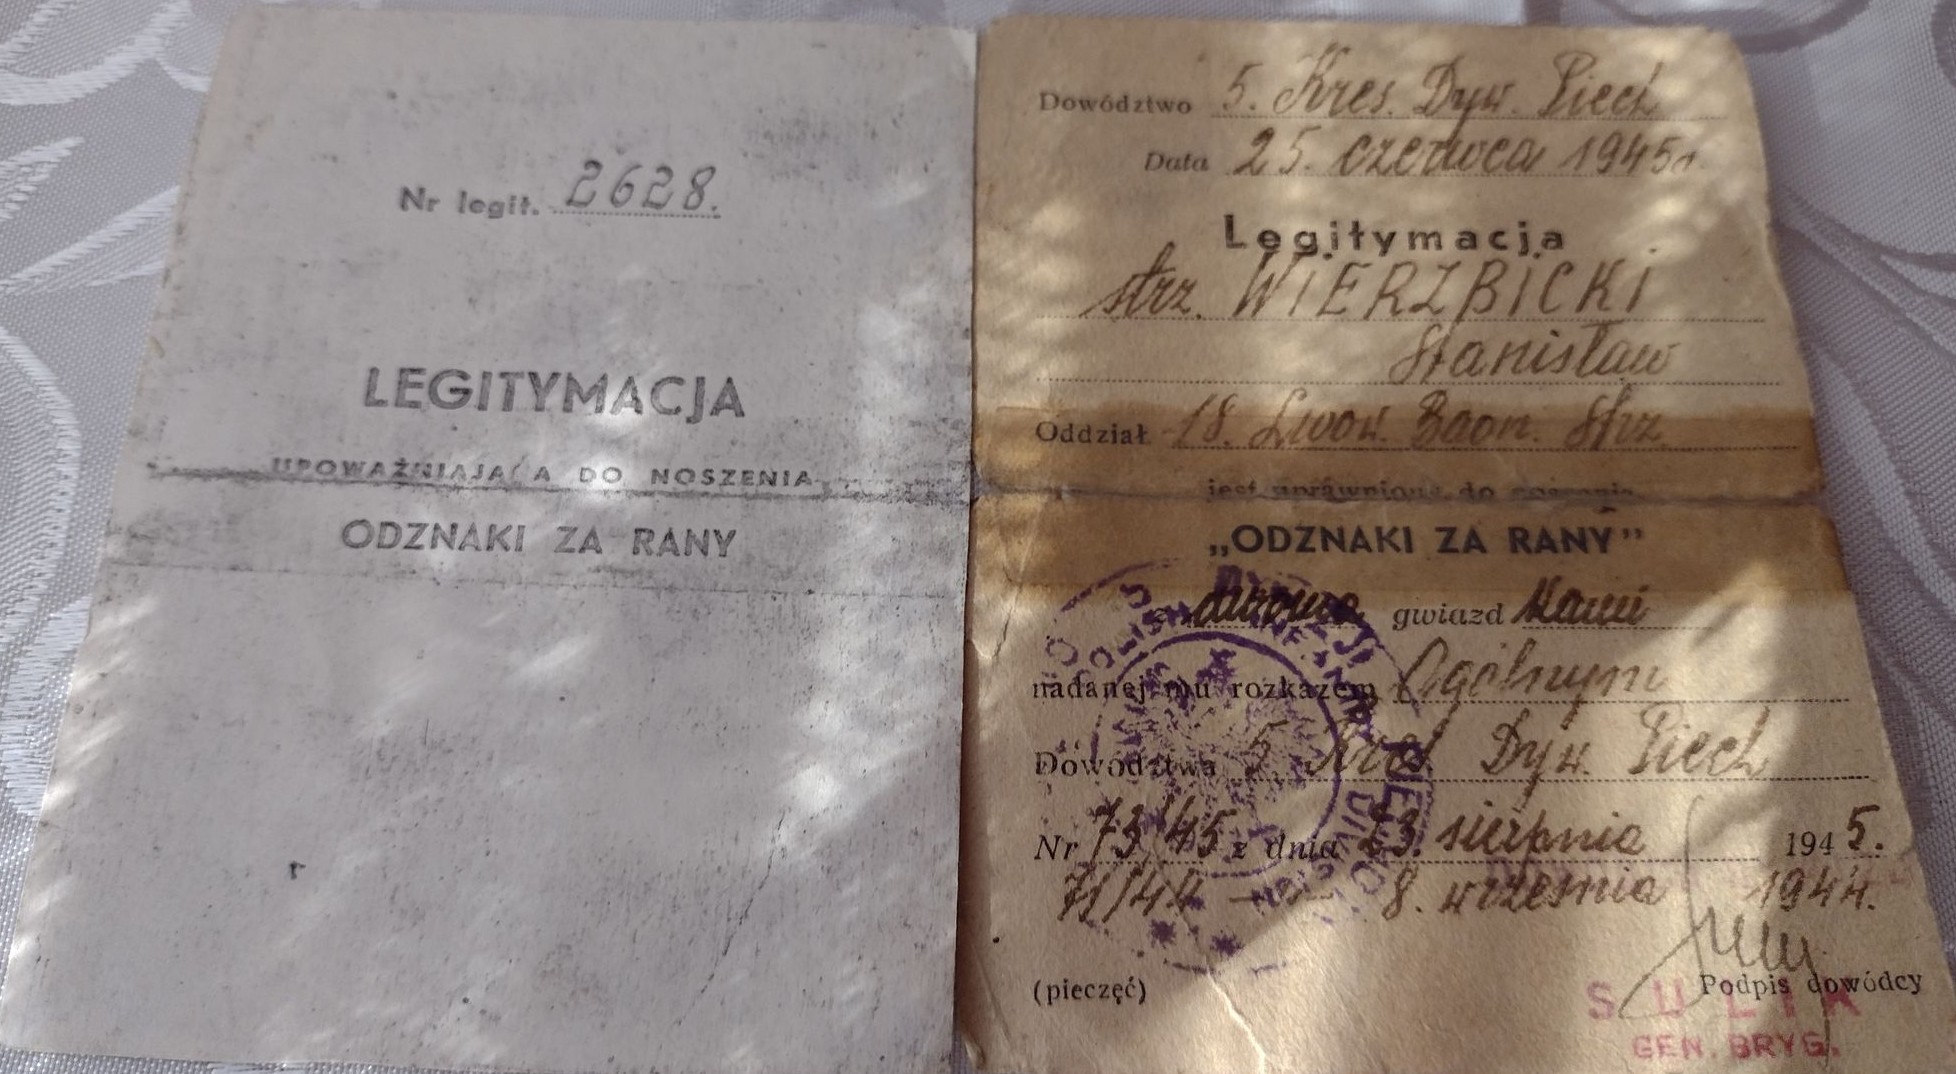 Nr legit. 2628.
LEGITYMACJA
UPOWAŻNIAJĄCA DO NOSZENIA
ODZNAKI ZA RANY
Dowództwo 5. Kres. Dyw. Piech
Data 25. czerwca 1945r.
Legitymacja
strz. WIERZBICKI
Stanisław
Oddział 18. Lwow. Baon. Strz.
jest uprawniony do noszenia
„ODZNAKI ZA RANY”
z dwoma gwiazd kami
nadanej mu rozkazem Ogólnym
Dowództwa 5. Kres. Dyw. Piech
Nr 73/45 z dnia 23. sierpnia 1945.
71/44 -"- 8. września 1944.
(pieczęć)
Podpis dowódcy
SULIK
GEN. BRYG.